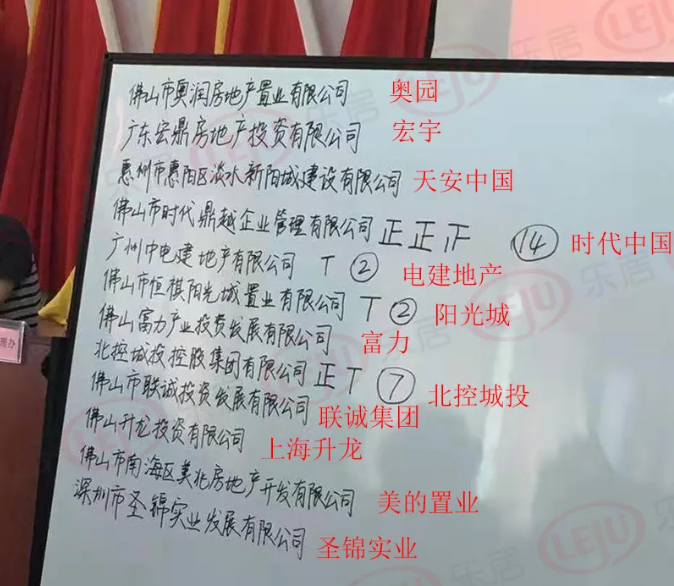 佛山市奥润房地产置业有限公司 奥园
广东宏鼎房地产投资有限公司 宏宇
惠州市惠阳区淡水新阳城建设有限公司 天安中国
佛山市时代鼎越企业管理有限公司 正正正 14 时代中国
广州中电建地产有限公司 T 2 电建地产
佛山市恒祺阳光城置业有限公司 T 2 阳光城
佛山富力产业投资发展有限公司 富力
北控城投控股集团有限公司 正T 7 北控城投
佛山市联诚投资发展有限公司 联诚集团
佛山升龙投资有限公司 上海升龙
佛山市南海区美兆房地产开发有限公司 美的置业
深圳市圣锦实业发展有限公司 圣锦实业
理办
LEJU 乐居